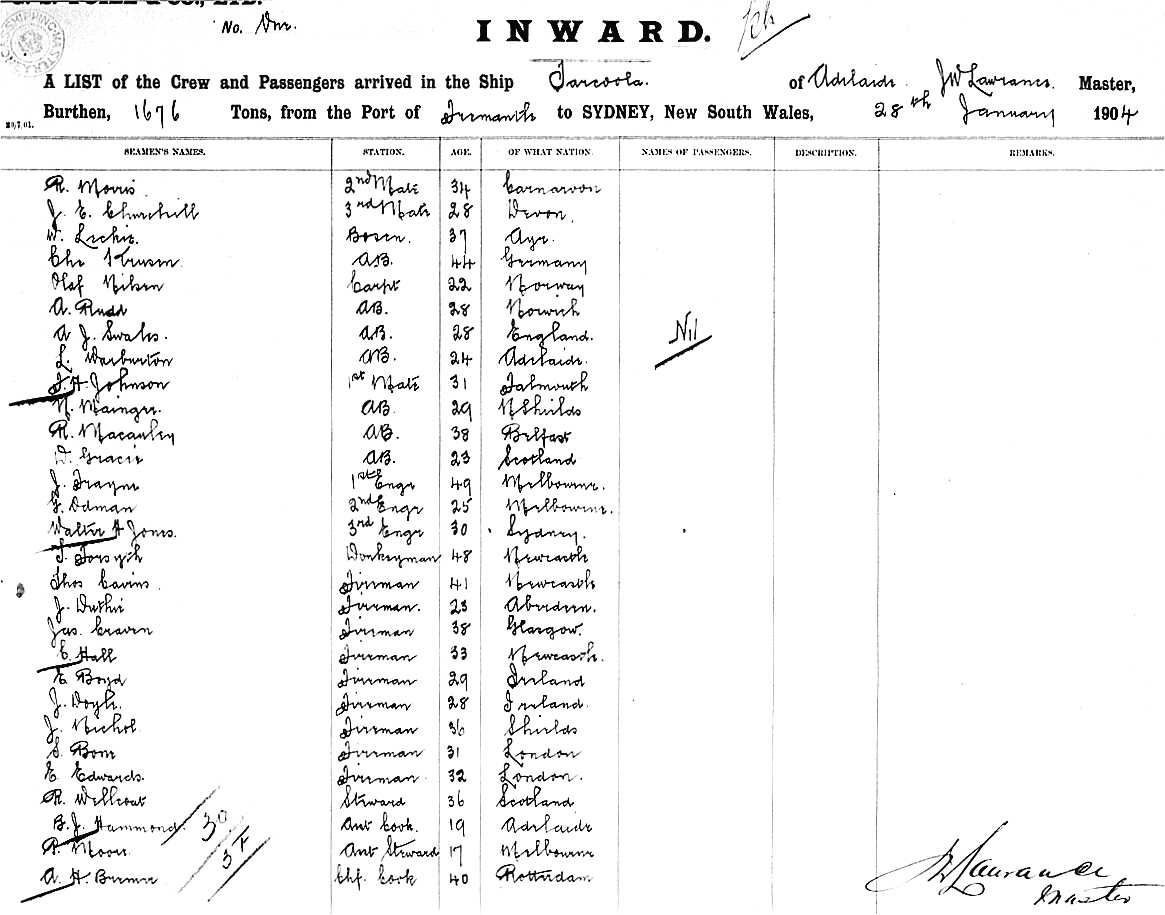 No. One.
INWARD.
A LIST of the Crew and Passengers arrived in the Ship Tarcoola. of Adelaide. JW Lawrance. Master,
Burthen, 1676 Tons, from the Port of Fremantle to SYDNEY, New South Wales, 28th January 1904
20,7,01.
SEAMEN'S NAMES. STATION. AGE. OF WHAT NATION. NAMES OF PASSENGERS. DESCRIPTION. REMARKS.
R. Morris. 2nd Mate 34 Carnarvon
J. E. Churchill 3rd Mate 28 Devon.
W. Leckie. Bosen. 37 Ayr.
Chr Krusen. AB. 44 Germany
Olaf Nilsen Carpt 22 Norway
A. Rudd AB. 28 Norwich
A J. Swales. AB. 28 England.
Nil
L. Warburton AB. 24 Adelaide.
J. H. Johnson 1st Mate 31 Falmouth
N. Mainger. AB. 29 N Shields
R. Macauley AB. 38 Belfast
D. Gracie AB. 23 Scotland
J. Trayne 1st Engr 49 Melbourne.
G. Odman 2nd Engr 25 Melbourne.
Walter H Jones. 3rd Engr 30 Sydney.
T. Forsyth Donkeyman 48 Newcastle
Thos Cavins. Fireman 41 Newcastle
J. Duthie Fireman. 23 Aberdeen.
Jas. Craven Fireman 38 Glasgow.
C. Hall Fireman 33 Newcastle.
E Boyd Fireman 29 Ireland
J. Doyle. Fireman 28 Ireland.
J. Nichol Fireman 36 Shields
S. Bone Fireman 31 London
E Edwards. Fireman 32 London.
R. Wellcoat Steward 36 Scotland
B. J. Hammond. 30 Asst Cook. 19 Adelaide
P. Moore. Asst Steward 17 Melbourne
A. H. Chf. Cook 40 Rotterdam
JW Lawrance
Master